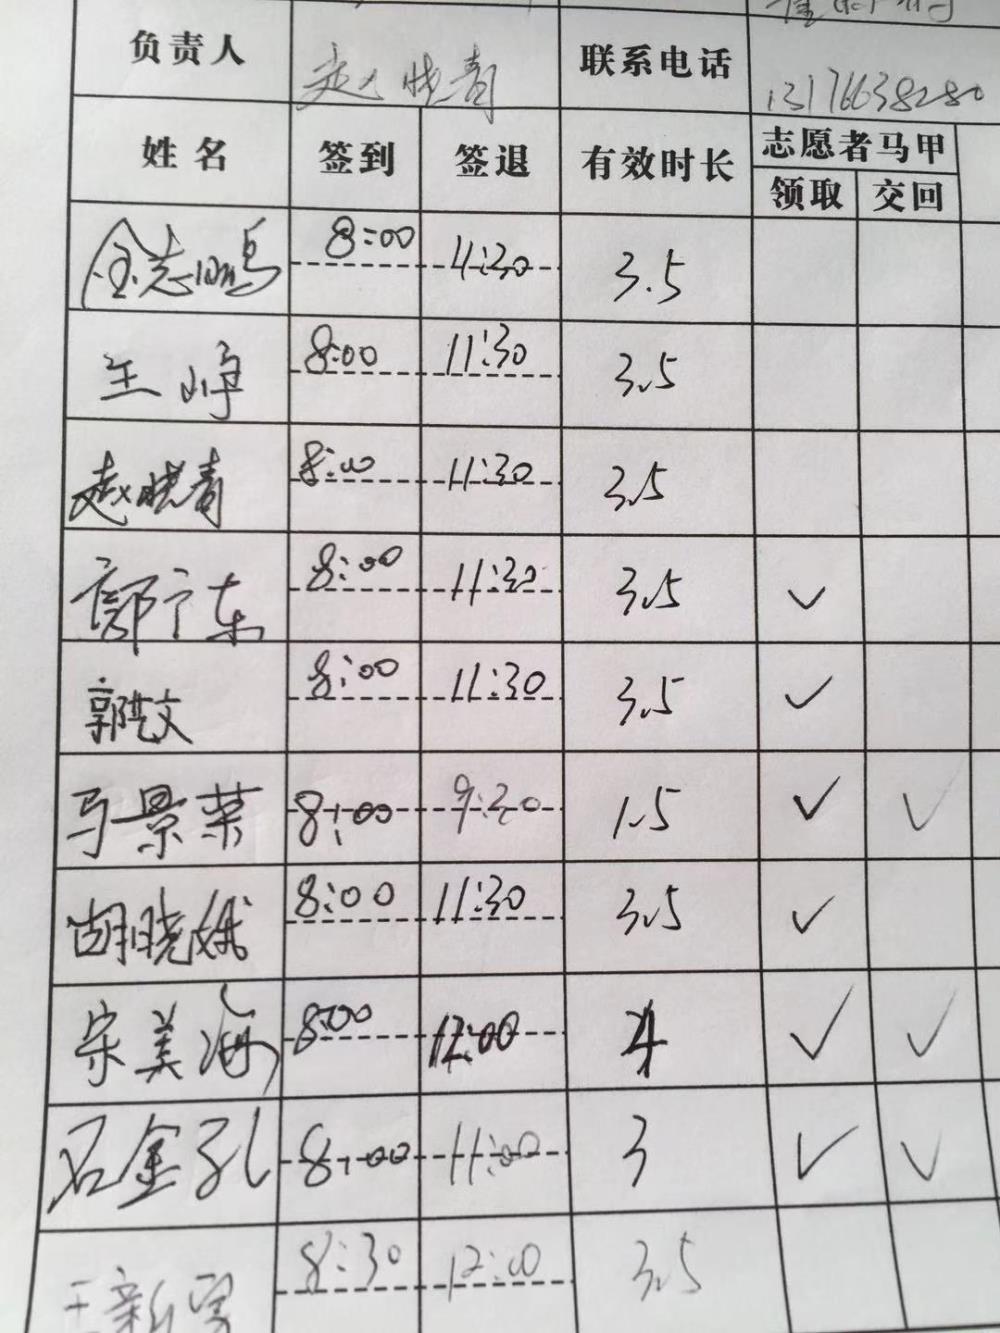 负责人 赵晓青 联系电话 13176638280
姓名 签到 签退 有效时长 志愿者马甲
领取 交回
金志鹏 8:00 4:30 3.5
王峥 8:00 11:30 3.5
赵晓青 8:00 11:30 3.5
郭广东 8:00 11:30 3.5 ✓
郭洪文 8:00 11:30 3.5 ✓
马景荣 8:00 9:30 1.5 ✓ ✓
胡晓娥 8:00 11:30 3.5 ✓
宋美海 8:00 12:00 4 ✓ ✓
石金孔 8:00 11:00 3 ✓ ✓
王新 8:30 12:00 3.5